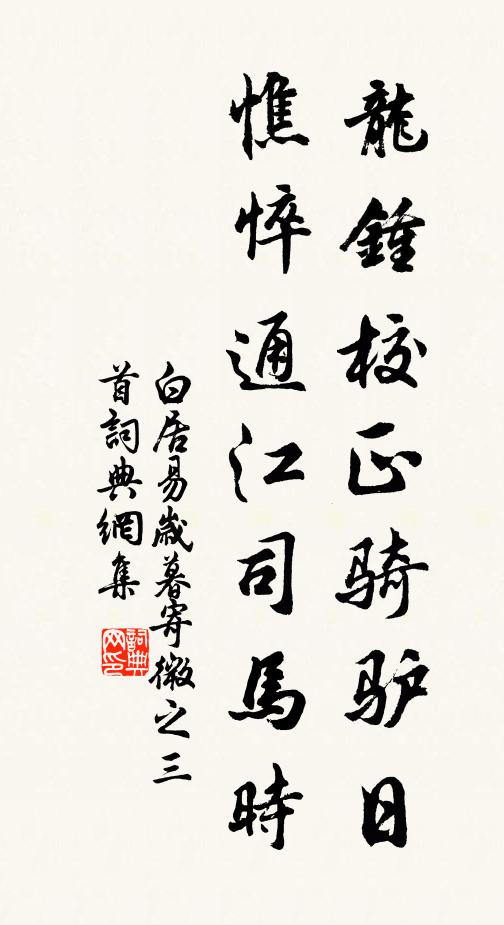 龍鍾校正骑驴日
憔悴通江司馬時
白居易歲暮寄微之三
首詞典網集
詞典
网印